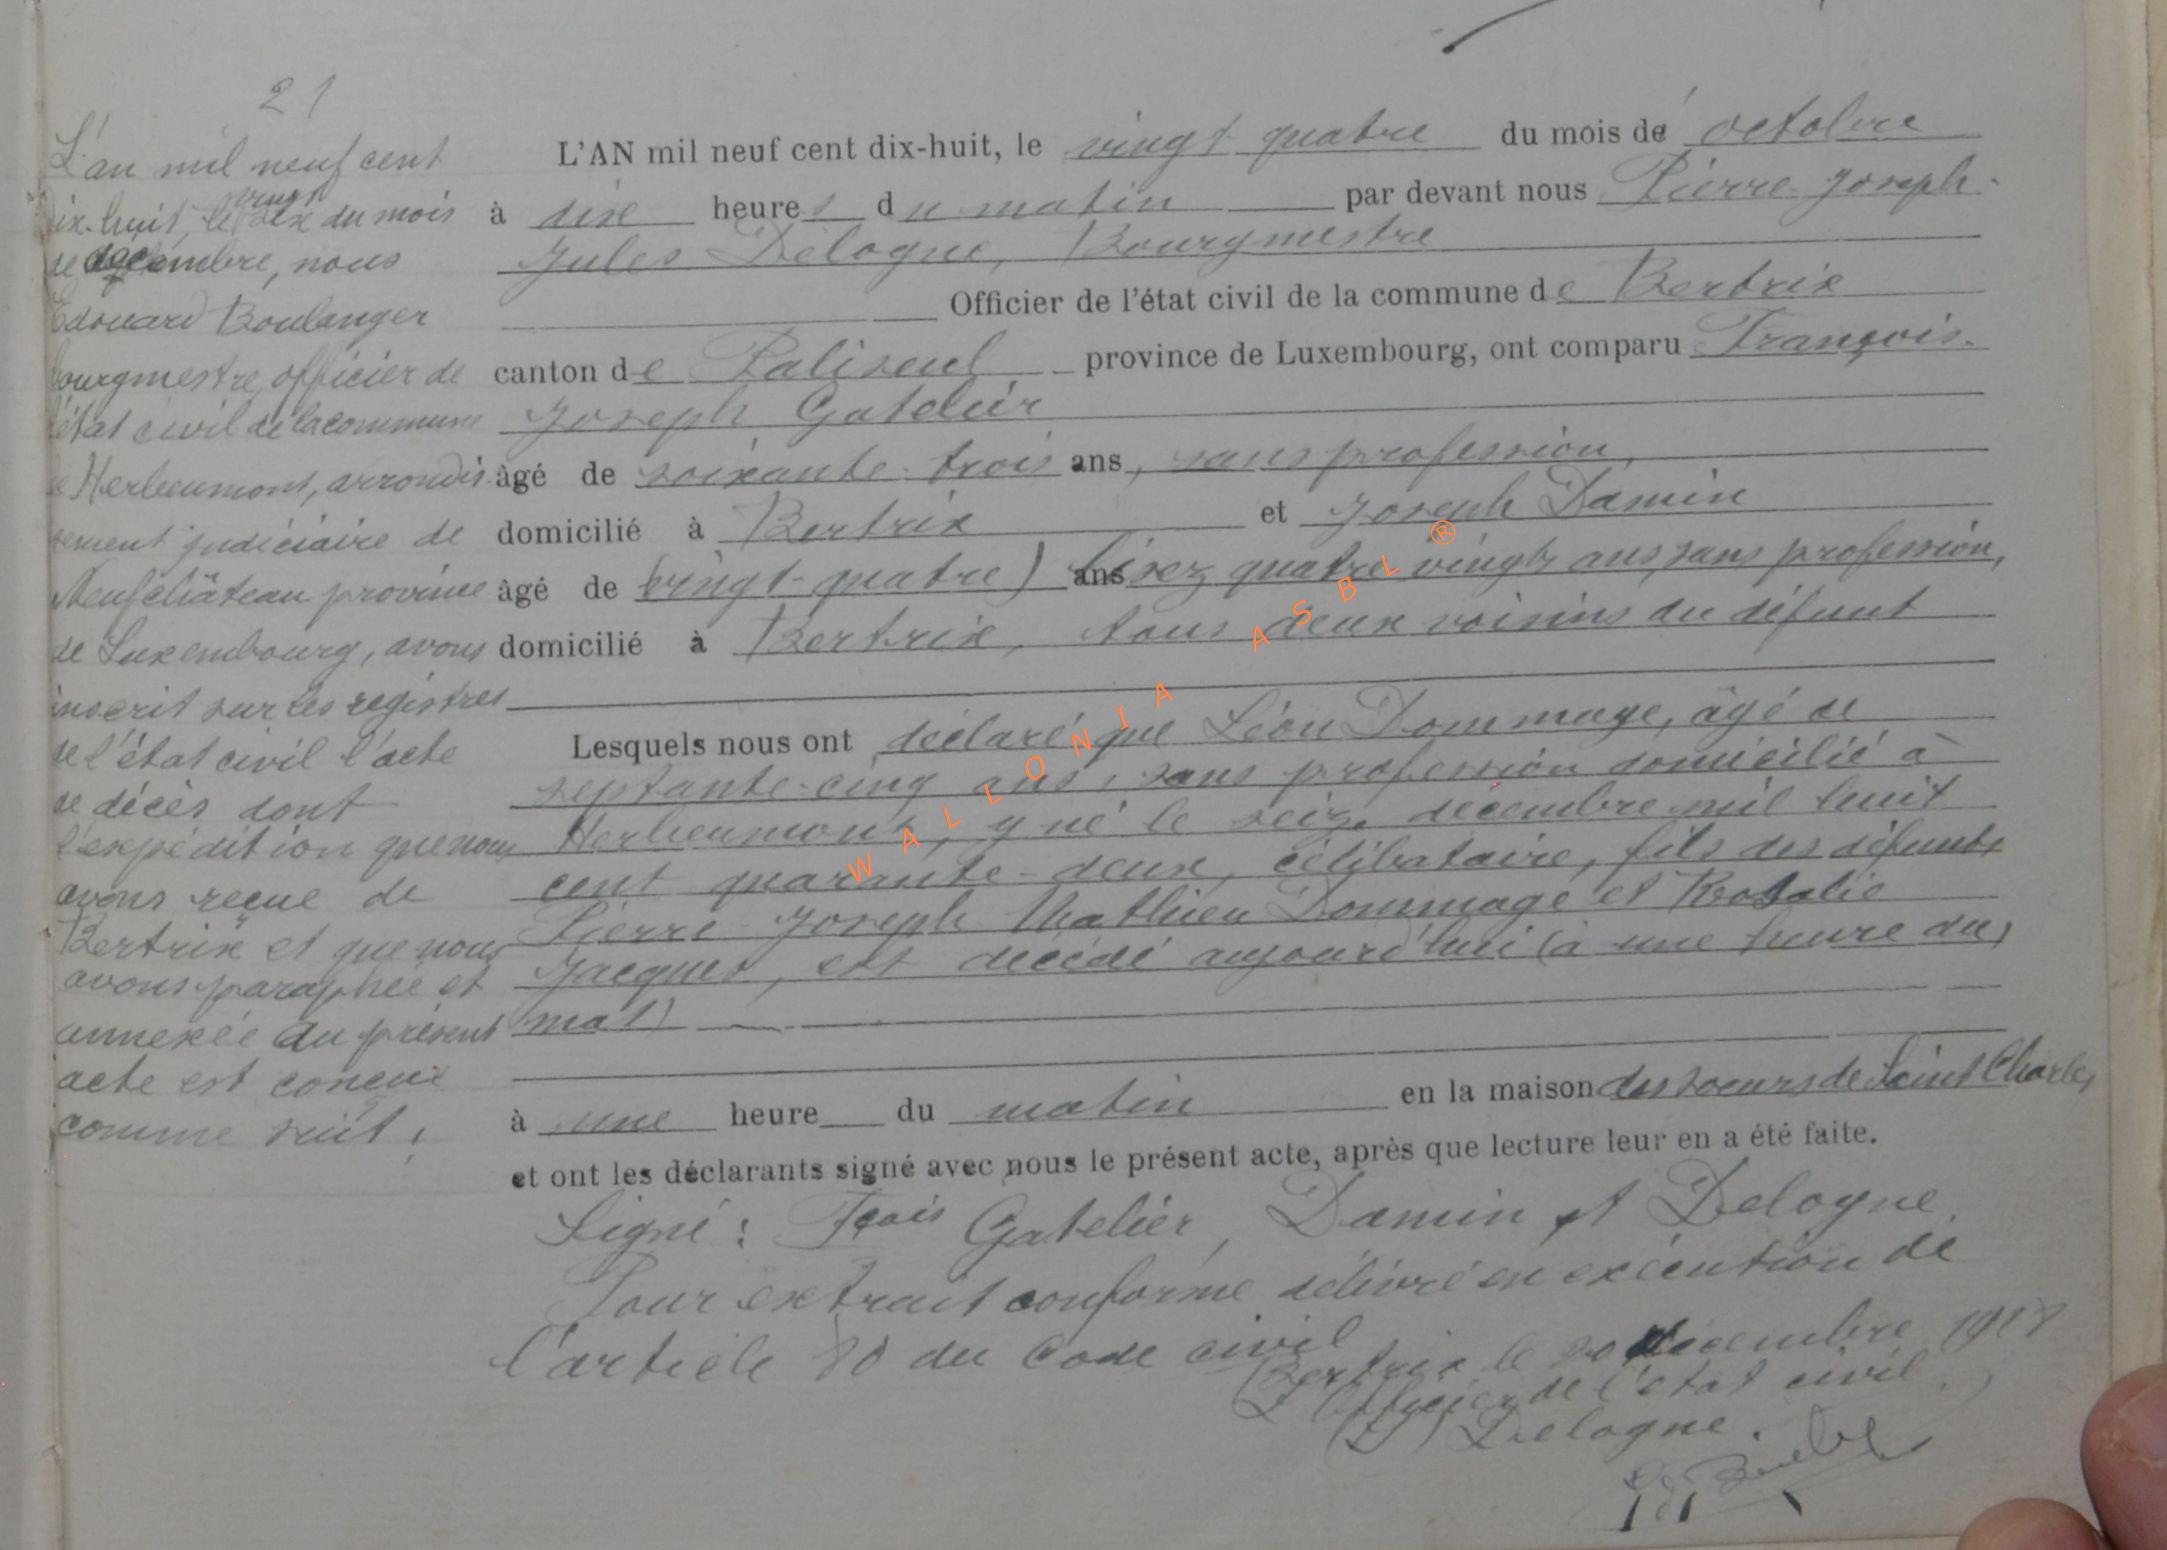 21
L'an mil neuf cent
dix-huit, le vingt six du mois
de décembre, nous
Edouard Boulanger
bourgmestre, officier de
l'état civil de la commune
de Herbeumont, arrondis-
sement judiciaire de
Neufchâteau province
de Luxembourg, avons
inscrit sur les registres
de l'état civil l'acte
de décès dont
l'expédition que nous
avons reçue de
Bertrix et que nous
avons paraphée et
annexée au présent
acte est conçue
comme suit :
L'AN mil neuf cent dix-huit, le vingt quatre du mois de octobre
à dix heures du matin par devant nous Pierre-Joseph-
Jules Delogne, Bourgmestre
Officier de l'état civil de la commune de Bertrix
canton de Paliseul province de Luxembourg, ont comparu François-
Joseph Gatelier
âgé de soixante-trois ans, sans profession,
domicilié à Bertrix et Joseph Damin
âgé de (vingt-quatre) ans lisez quatre vingts ans, sans profession,
domicilié à Bertrix, tous deux voisins du défunt
Lesquels nous ont déclaré que Léon Dommage, âgé de
septante-cinq ans, sans profession domicilié à
Herbeumont, y né le seize décembre mil huit
cent quarante-deux, célibataire, fils des défunts
Pierre Joseph Mathieu Dommage et Rosalie
Jacques, est décédé aujourd'hui (à une heure du
mat)
à une heure du matin en la maison des soeurs de Saint Charles
et ont les déclarants signé avec nous le présent acte, après que lecture leur en a été faite.
Signé : Fçois Gatelier, Damin et Delogne.
Pour extrait conforme délivré en exécution de
l'article 80 du Code civil
Bertrix le 20 décembre 1918
L'Officier de l'état civil
(S) Delogne.
WALLONIA ASBL ®